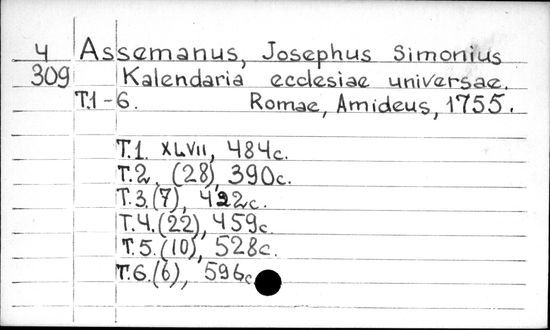 4 Assemanus, Josephus Simonius
309 Kalendaria ecclesiae universae.
T.1-6. Romae, Amideus, 1755.
T.1. XLVII, 484c.
T.2. (28), 390c.
T.3.(7), 422c.
T.4.(22), 459c.
T.5.(10), 528c.
T.6.(6), 596c.